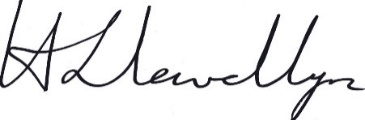 H Llewellyn